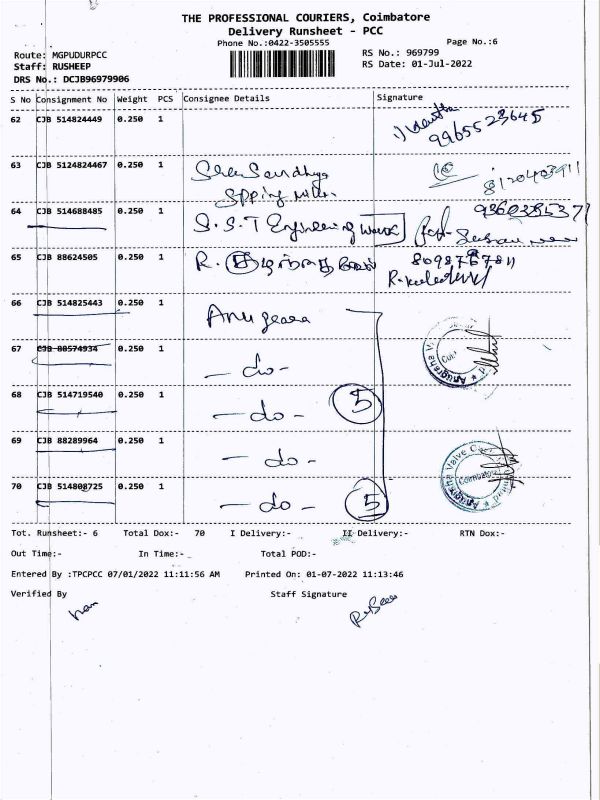 THE PROFESSIONAL COURIERS, Coimbatore
Delivery Runsheet - PCC
Phone No.:0422-3505555
Page No.:6
Route: MGPUDURPCC
RS No.: 969799
Staff: RUSHEEP
RS Date: 01-Jul-2022
DRS No.: DCJB96979906
S No Consignment No Weight PCS Consignee Details Signature
62 CJB 514824449 0.250 1
9965523645
63 CJB 5124824467 0.250 1
64 CJB 514688485 0.250 1 S.S.T Engineering
65 CJB 88624505 0.250 1 R.
66 CJB 514825443 0.250 1
67 CJB 80574934 0.250 1 - do -
68 CJB 514719540 0.250 1 - do - 5
69 CJB 88289964 0.250 1 - do -
70 CJB 514808725 0.250 1 - do - 5
Tot. Runsheet:- 6 Total Dox:- 70 I Delivery:- II Delivery:- RTN Dox:-
Out Time:- In Time:- Total POD:-
Entered By :TPCPCC 07/01/2022 11:11:56 AM Printed On: 01-07-2022 11:13:46
Verified By Staff Signature